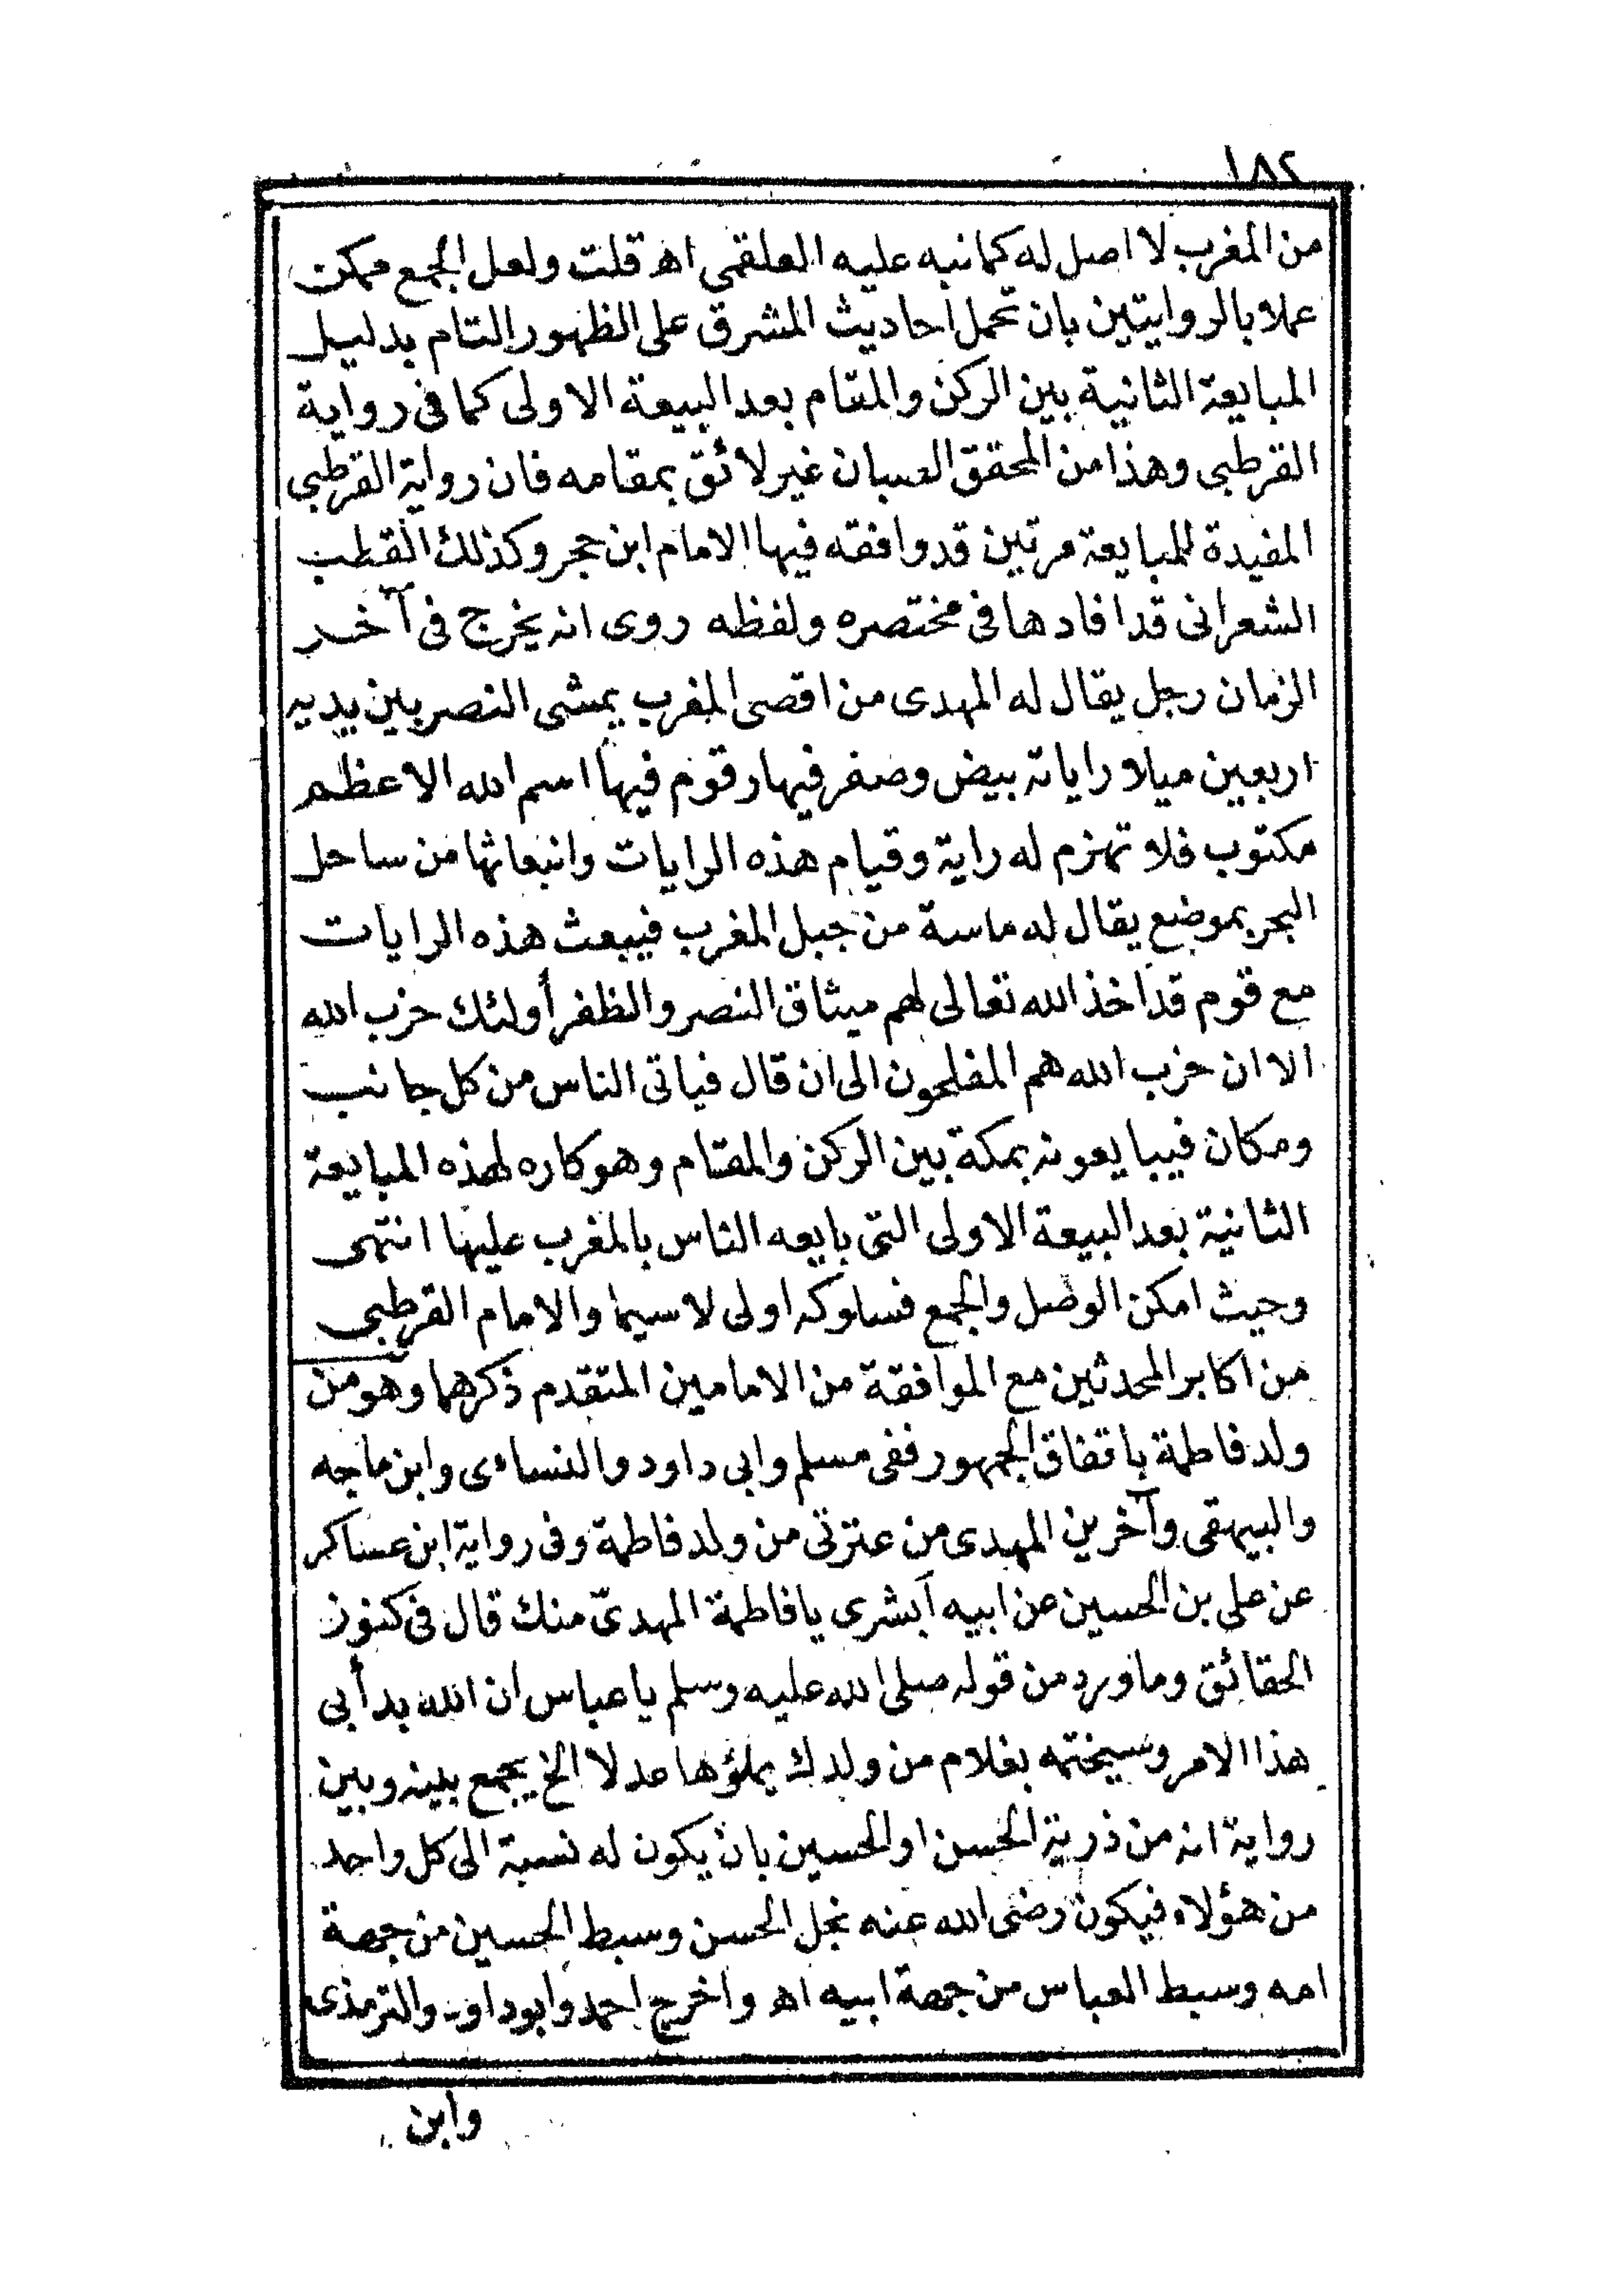 ١٨٢
من المغرب لا اصل له كما نبه عليه العلقمى اهـ قلت ولعل الجمع ممكن
عملا بالروايتين بان تحمل احاديث المشرق على الظهور التام بدليل
المبايعة الثانية بين الركن والمقام بعد البيعة الاولى كما فى رواية
القرطبى وهذا من المحقق الصبان غير لائق بمقامه فان رواية القرطبى
المفيدة للمبايعة مرتين قد وافقه فيها الامام ابن حجر وكذلك القطب
الشعرانى قد افادها فى مختصره ولفظه روى انه يخرج فى آخر
الزمان رجل يقال له المهدى من اقصى المغرب يمشى النصر بين يديه
اربعين ميلا راياته بيض وصفر فيها رقوم فيها اسم الله الاعظم
مكتوب فلا تهزم له راية وقيام هذه الرايات وانبعاثها من ساحل
البحر بموضع يقال له ماسة من جبل المغرب فيبعث هذه الرايات
مع قوم قد اخذ الله تعالى لهم ميثاق النصر والظفر أولئك حزب الله
الا ان حزب الله هم المفلحون الى ان قال فياتى الناس من كل جانب
ومكان فيبايعونه بمكة بين الركن والمقام وهو كاره لهذه المبايعة
الثانية بعد البيعة الاولى التى بايعه الناس بالمغرب عليها انتهى
وحيث امكن الوصل والجمع فسلوكه اولى لا سيما والامام القرطبى
من اكابر المحدثين مع الموافقة من الامامين المتقدم ذكرهما وهو من
ولد فاطمة باتفاق الجمهور ففى مسلم وابى داود والنساءى وابن ماجه
والبيهقى وآخرين المهدى من عترتى من ولد فاطمة وفى رواية ابن عساكر
عن على بن الحسين عن ابيه أبشرى يا فاطمة المهدىّ منك قال فى كنوز
الحقائق وما ورد من قوله صلى الله عليه وسلم يا عباس ان الله بدأ بى
هذا الامر وسيختمه بغلام من ولدك يملؤها عدلا الخ يجمع بينه وبين
رواية انه من ذرية الحسن او الحسين بان يكون له نسبة الى كل واحد
من هؤلاء فيكون رضى الله عنه نجل الحسن وسبط الحسين من جهة
امه وسبط العباس من جهة ابيه اهـ واخرج احمد وابو داود والترمذى
وابن